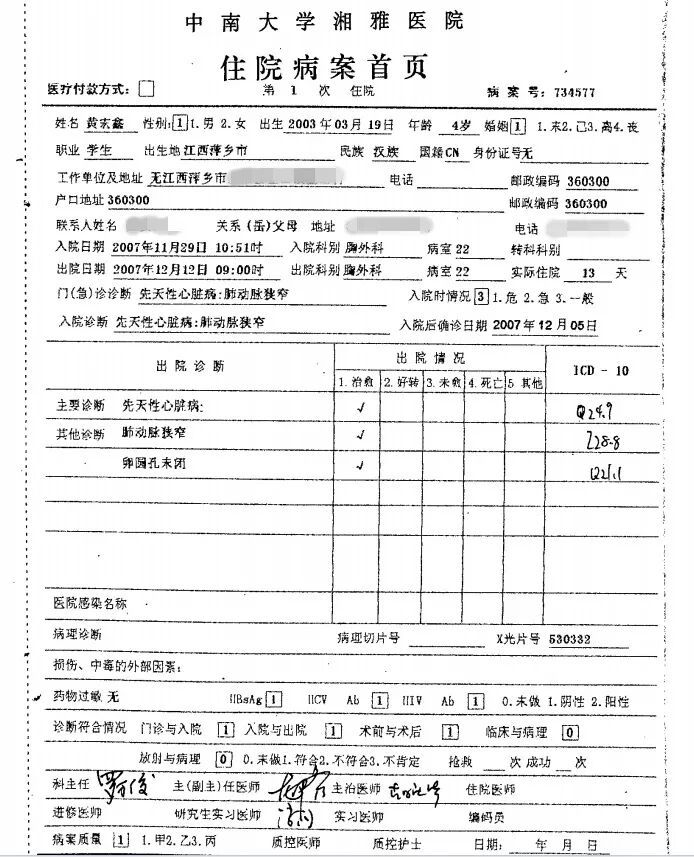 中南大学湘雅医院
住院病案首页
医疗付款方式: 第 1 次 住院 病案号: 734577
姓名 黄宏鑫 性别: 1 1.男 2.女 出生 2003年03月19日 年龄 4岁 婚姻 1 1.未2.已3.离4.丧
职业 学生 出生地 江西萍乡市 民族 汉族 国籍CN 身份证号无
工作单位及地址 无江西萍乡市 电话 邮政编码 360300
户口地址360300 邮政编码 360300
联系人姓名 关系 (岳)父母 地址 电话
入院日期 2007年11月29日 10:51时 入院科别 胸外科 病室 22 转科科别
出院日期 2007年12月12日 09:00时 出院科别 胸外科 病室 22 实际住院 13 天
门(急)诊诊断 先天性心脏病:肺动脉狭窄 入院时情况 3 1.危 2.急 3.一般
入院诊断 先天性心脏病:肺动脉狭窄 入院后确诊日期 2007年12月05日
出院诊断 出院情况 ICD-10
1.治愈 2.好转 3.未愈 4.死亡 5.其他
主要诊断 先天性心脏病: ✓ Q24.9
其他诊断 肺动脉狭窄 ✓
卵圆孔未闭 ✓ Q21.1
医院感染名称
病理诊断 病理切片号 X光片号 530332
损伤、中毒的外部因素:
药物过敏 无 HBsAg 1 HCV Ab 1 HIV Ab 1 0.未做 1.阴性 2.阳性
诊断符合情况 门诊与入院 1 入院与出院 1 术前与术后 1 临床与病理 0
放射与病理 0 0.未做1.符合2.不符合3.不肯定 抢救 次 成功 次
科主任 主(副主)任医师 主治医师 住院医师
进修医师 研究生实习医师 实习医师 编码员
病案质量 1 1.甲2.乙3.丙 质控医师 质控护士 日期: 年 月 日